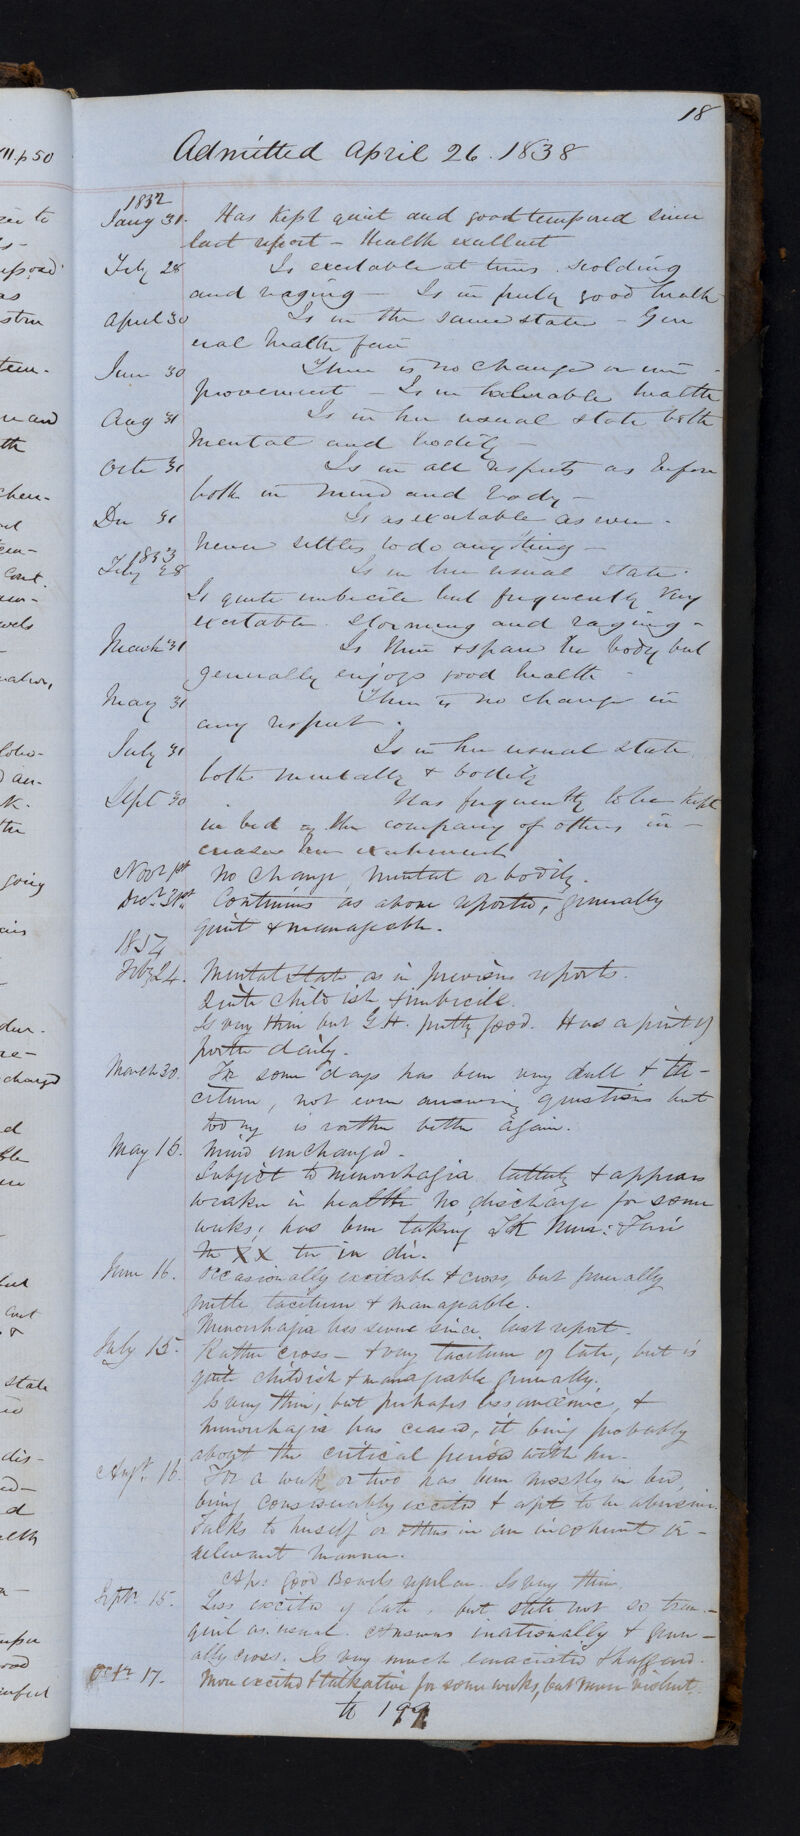 18
Admitted April 26. 1838
1852
Jany 31. Has kept quiet and good tempered since
last report - Health excellent
Feby 28 Is excitable at times. Scolding
and raging - Is in pretty good health
April 30 Is in the same state - Gen
eral health fair
June 30 There is no change or im-
provement - Is in tolerable health
Aug 31 Is in her usual state both
mental and bodily -
Octr 31 Is in all respects as before
both in mind and body -
Dec 31 Is as excitable as ever.
Never settles to do anything -
1853
Feby 28 Is in her usual state.
Is quite imbecile but frequently very
excitable. Storming and raging -
March 31 Is thin & spare in body but
generally enjoys good health -
May 31 There is no change in
any respect.
July 31 Is in her usual state
both mentally & bodily
Sept 30 Has frequently to be kept
in bed as the company of others in-
creases her excitement
Novr 1st No change mental or bodily.
Decr 31st Continues as above reported, generally
quiet & manageable.
1854
Feby 24. Mental state as in previous reports.
Quite childish & imbecile.
Is very thin but G.H. pretty good. Has a pint of
porter daily.
March 30. For some days has been very dull & ta-
citurn, not even answering questions but
today is rather better again.
May 16. Mind unchanged.
Subject to menorrhagia latterly & appears
weaker in health No discharge for some
weeks; has been taking Mur: Ferri
XX ter in die.
June 16. Occasionally excitable & cross, but generally
quite taciturn & manageable.
Menorrhagia less severe since last report.
July 15. Rather cross - & very taciturn of late, but is
quite childish & manageable generally.
Is very thin, but perhaps less anæmic, &
menorrhagia has ceased, it being probably
about the critical period with her.
Augt 16. For a week or two has been mostly in bed,
being considerably excited & apt to be abusive.
Talks to herself or others in an incoherent ir-
relevant manner.
Ap: good Bowels regular. Is very thin.
Septr 15. Less excited of late, but still not so tran-
quil as usual. Answers irrationally & gener-
ally cross. Is very much emaciated & haggard.
Octr 17. More excited & talkative for some weeks, but never violent.
to 199